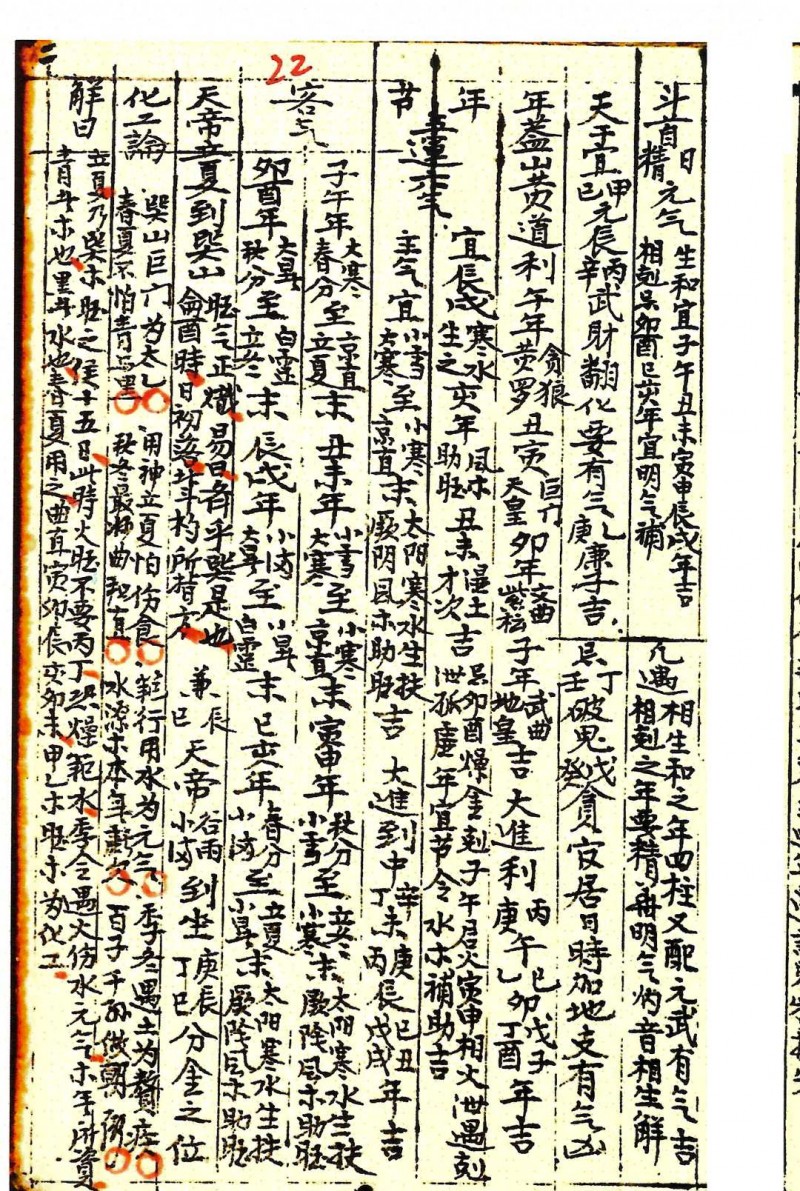 22
斗首日精元气 生和宜子午丑未寅申辰戌年吉 相剋忌卯酉巳亥年宜明气補 凡遇相生和之年四柱又配元武有气吉 相剋之年要精明气纳音相生解
天干宜甲己元辰丙辛武財翻化要有气乙庚廉子吉 忌丁壬破鬼戊癸貪官居日時加地支有气凶
年蓋山黄道利午年贪狼黄罗丑寅巨门天皇卯年文曲紫檀子年武曲地皇吉大進利丙庚午乙巳卯戊丁子酉年吉
年 五運六气 宜辰戌寒水生之亥年風木助旺丑未湿土才次吉忌卯酉燥金剋子午君火寅申相火泄遇剋泄孤虚年宜节令水木補助吉
节 主气宜小雪大寒至小寒京直末太阳寒水生扶厥阴風木助旺吉 大進到中辛丁未庚丙辰己丑戊戌年吉
客气 子午年大寒春分至京直立夏末 丑未年小雪大寒至小寒京直末 寅申年秋分小雪至立冬小寒末太阳寒水生扶厥陰風木助旺
卯酉年大暑秋分至白露立冬末 辰戌年小满大暑至小暑白露末 巳亥年春分小满至立夏小暑末太阳寒水生扶厥陰風木助旺
天帝立夏到巽山 旺气正熾易曰齐乎巽是也 酉時日初落斗杓所指方 兼辰巳 天帝谷雨小满到坐庚辰丁巳分金之位
化工論 巽山巨门为太乙 用神立夏怕伤食 範行用水为元气 季冬遇土为贅疣 春夏不怕青与黑 秋冬最好曲和直 水源木本年 百子千孙做朝
解曰 立夏乃巽木旺之候十五日此時火旺不要丙丁燥範水季令遇火伤水元气木年所資 青者木也黑者水也春夏用之曲直寅卯辰亥卯未甲乙木旺木为化工